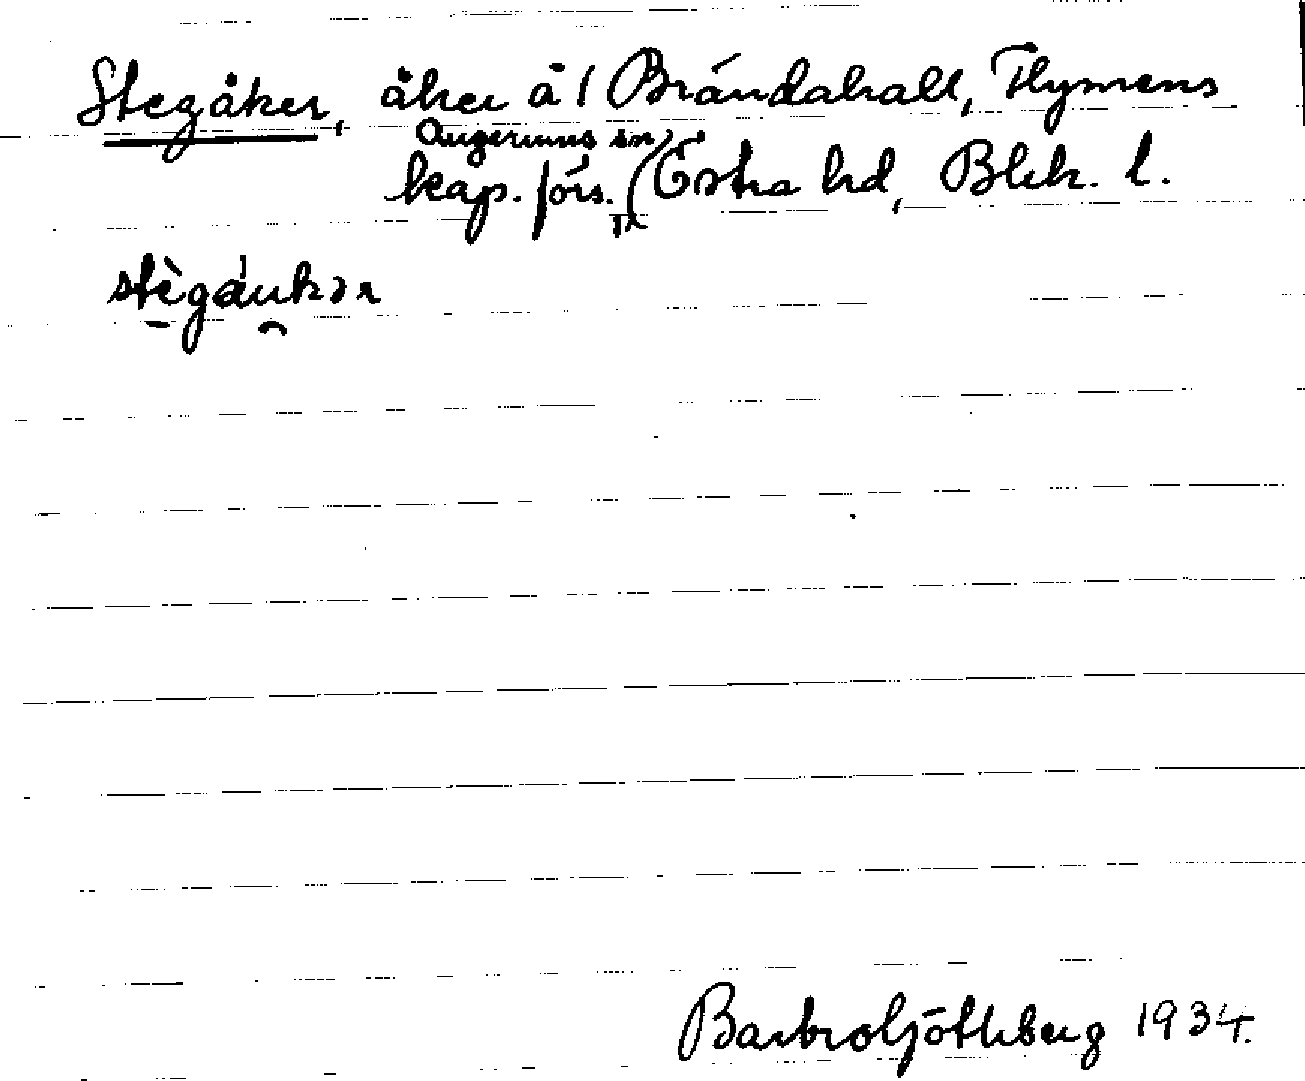 Stegåker, åker å 1 Brändahall, Flymens
Augerums sn
kap. förs. Östra hd, Blek. l.
stègáukər
Barbro Götlberg 1934.